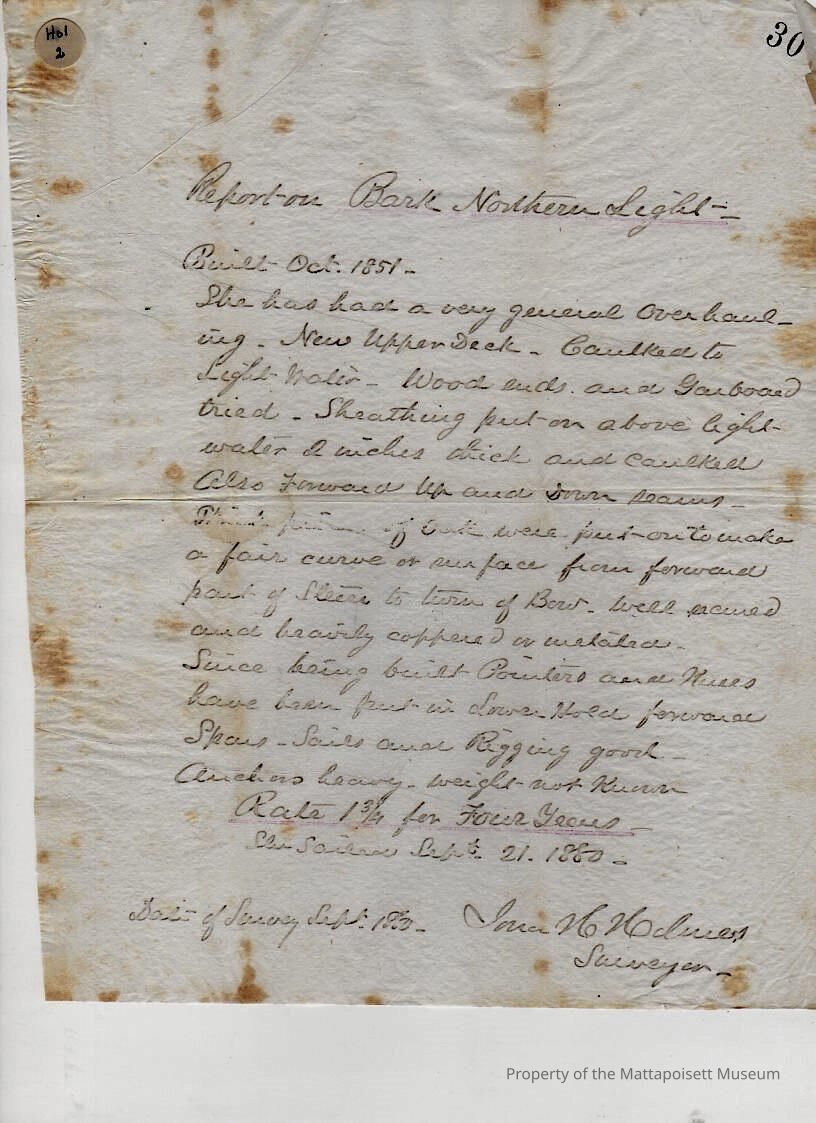 Hol
2
30
Report on Bark Northern Light
Built Oct. 1851 -
She has had a very general Overhaul-
ing - New Upper Deck - Caulked to
Light Water - Wood ends and Garboard
tried - Sheathing put on above light
water 2 inches thick and caulked
Also Forward Up and Down seams -
of Oak were put on to make
a fair curve or surface from forward
part of Stem to turn of Bow - Well secured
and heavily coppered or metaled -
Since being built Pointers and Knees
have been put in Lower Hold forward
Spars - Sails and Rigging good -
Anchors heavy - weight not Known
Rate 1 3/4 for Four Years -
She Sailed Sept. 21. 1880 -
Date of Survey Sept. 1880 - H Holmes
Surveyor -
Property of the Mattapoisett Museum